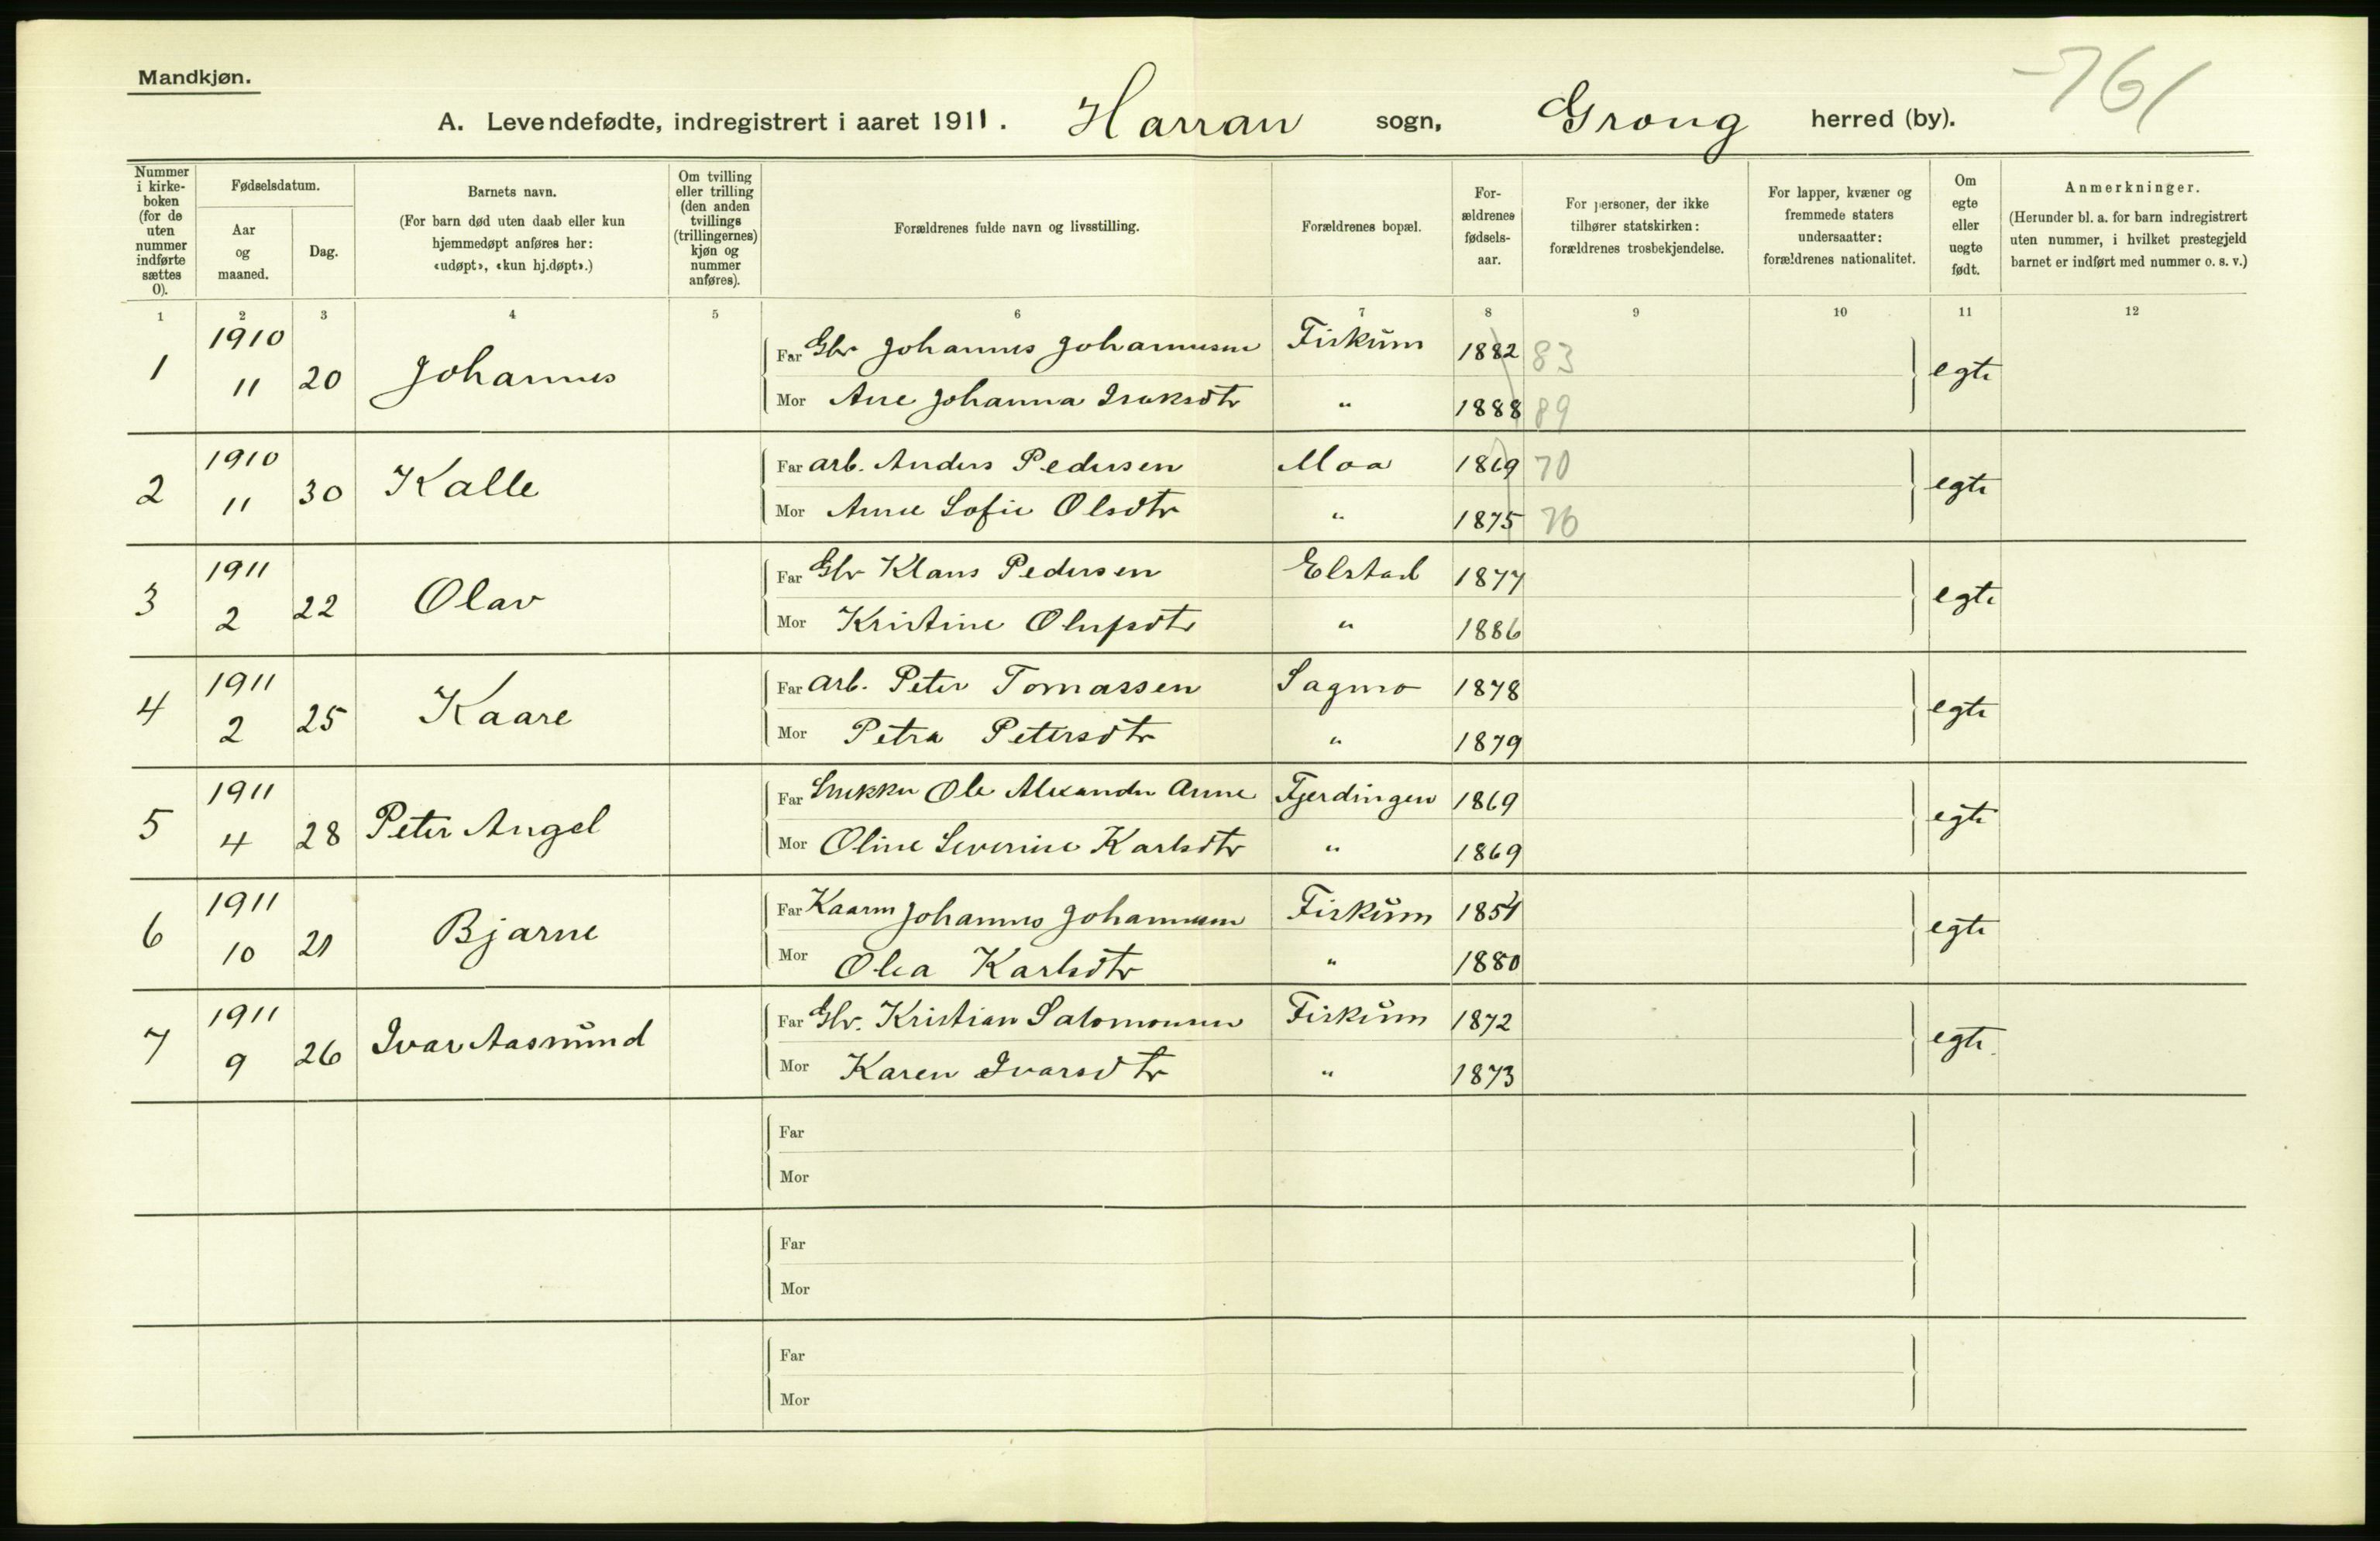 761
Mandkjøn.
A. Levendefødte, indregistrert i aaret 1911. Harran sogn, Grong herred (by).
Nummer i kirke-boken (for de uten nummer indførte sættes 0).
Fødselsdatum.
Aar og maaned.
Dag.
Barnets navn.
(For barn død uten daab eller kun hjemmedøpt anføres her: «udøpt», «kun hj.døpt».)
Om tvilling eller trilling (den anden tvillings (trillingernes) kjøn og nummer anføres).
Forældrenes fulde navn og livsstilling.
Forældrenes bopæl.
For-ældrenes fødsels-aar.
For personer, der ikke tilhører statskirken: forældrenes trosbekjendelse.
For lapper, kvæner og fremmede staters undersaatter: forældrenes nationalitet.
Om egte eller uegte født.
Anmerkninger.
(Herunder bl. a. for barn indregistrert uten nummer, i hvilket prestegjeld barnet er indført med nummer o. s. v.)
1 2 3 4 5 6 7 8 9 10 11 12
1 1910 11 20 Johannes Far Gbr Johannes Johannesen Fiskum 1882 83 egte
Mor Ane Johanna Isaksdtr " 1888 89
2 1910 11 30 Kalle Far arb. Anders Pedersen Moa 1869 70 egte
Mor Anne Sofie Olsdtr " 1875 76
3 1911 2 22 Olav Far Gbr Klaus Pedersen Elstad 1877 egte
Mor Kristine Olufsdtr " 1886
4 1911 2 25 Kaare Far arb. Peter Tomassen Sagmo 1878 egte
Mor Petra Petersdtr " 1879
5 1911 4 28 Peter Angel Far Ole Alexander Fjerdingen 1869 egte
Mor Oline Severine Karlsdtr " 1869
6 1911 10 21 Bjarne Far Kaarm Johannes Johannesen Fiskum 1854 egte
Mor Olea Karlsdtr " 1880
7 1911 9 26 Ivar Aasmund Far Gbr. Kristian Salomonsen Fiskum 1872 egte
Mor Karen Ivarsdtr " 1873
Far
Mor
Far
Mor
Far
Mor